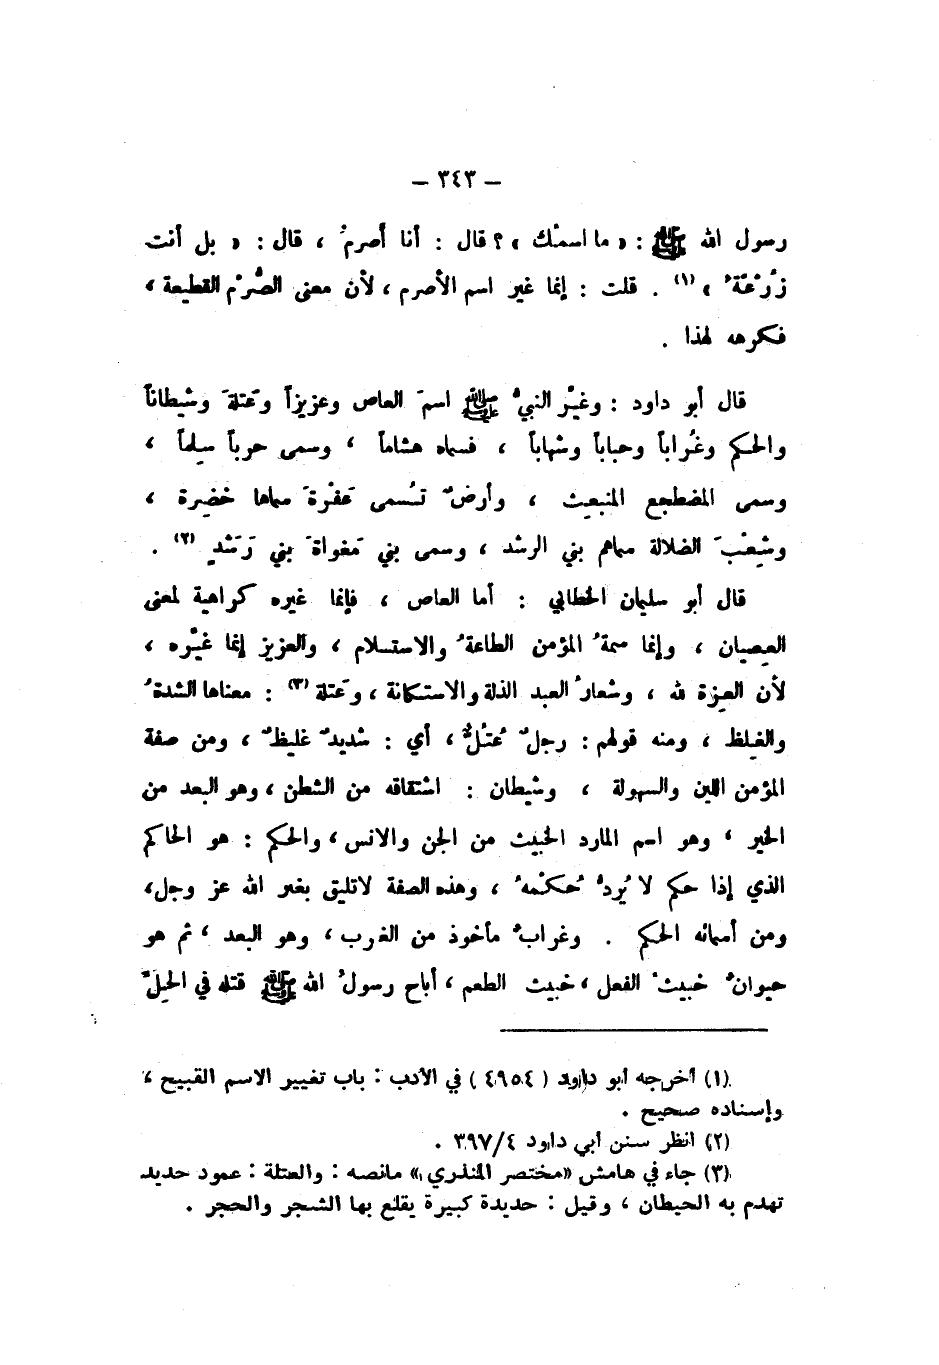 – ٣٤٣ –
رسول الله ﷺ : « ما اسمْك » ؟ قال : أنا أصرمُ ، قال : « بل أنت
زُرْعَةُ » (١) . قلت : إنما غير اسم الأصرم ، لأن معنى الصُّرْم القطيعة ،
فكرهه لهذا .
قال أبو داود : وغيّر النبيُّ ﷺ اسمَ العاص وعزيزاً وعَتلَةَ وشيطاناً
والحكم وغُراباً وحباباً وشهاباً ، فسماه هشاماً ، وسمى حرباً سِلماً ،
وسمى المضطجع المنبعث ، وأرضٌ تُسمى عَفْرةَ سماها خضِرة ،
وشِعْبَ الضلالة سماهم بني الرشد ، وسمى بني مَغواةَ بني رَشدٍ (٢) .
قال أبو سليمان الخطابي : أما العاص ، فإنما غيره كراهية لمعنى
العصيان ، وإنما سمةُ المؤمن الطاعةُ والاستسلام ، والعزيز إنما غيّره ،
لأن العزة لله ، وشعارُ العبد الذلة والاستكانة ، وعَتلة (٣) : معناها الشدةُ
والغلظ ، ومنه قولهم : رجلٌ عُتُلٌّ ، أي : شديدٌ غليظٌ ، ومن صفة
المؤمن اللين والسهولة ، وشيطان : اشتقاقه من الشطن ، وهو البعد من
الخير ، وهو اسم المارد الخبيث من الجن والانس ، والحكم : هو الحاكم
الذي إذا حكم لا يُردُّ حُكْمه ، وهذه الصفة لاتليق بغير الله عز وجل،
ومن أسمائه الحكم . وغرابٌ مأخوذ من الغرب ، وهو البعد ، ثم هو
حيوانٌ خبيث الفعل ، خبيث الطعم ، أباح رسولُ الله ﷺ قتله في الحِلّ
(١) أخرجه أبو داود ( ٤٩٥٤ ) في الأدب : باب تغيير الاسم القبيح ،
وإسناده صحيح .
(٢) انظر سنن أبي داود ٣٩٧/٤ .
(٣) جاء في هامش «مختصر المنذري» مانصه : والعتلة : عمود حديد
تهدم به الحيطان ، وقيل : حديدة كبيرة يقلع بها الشجر والحجر .